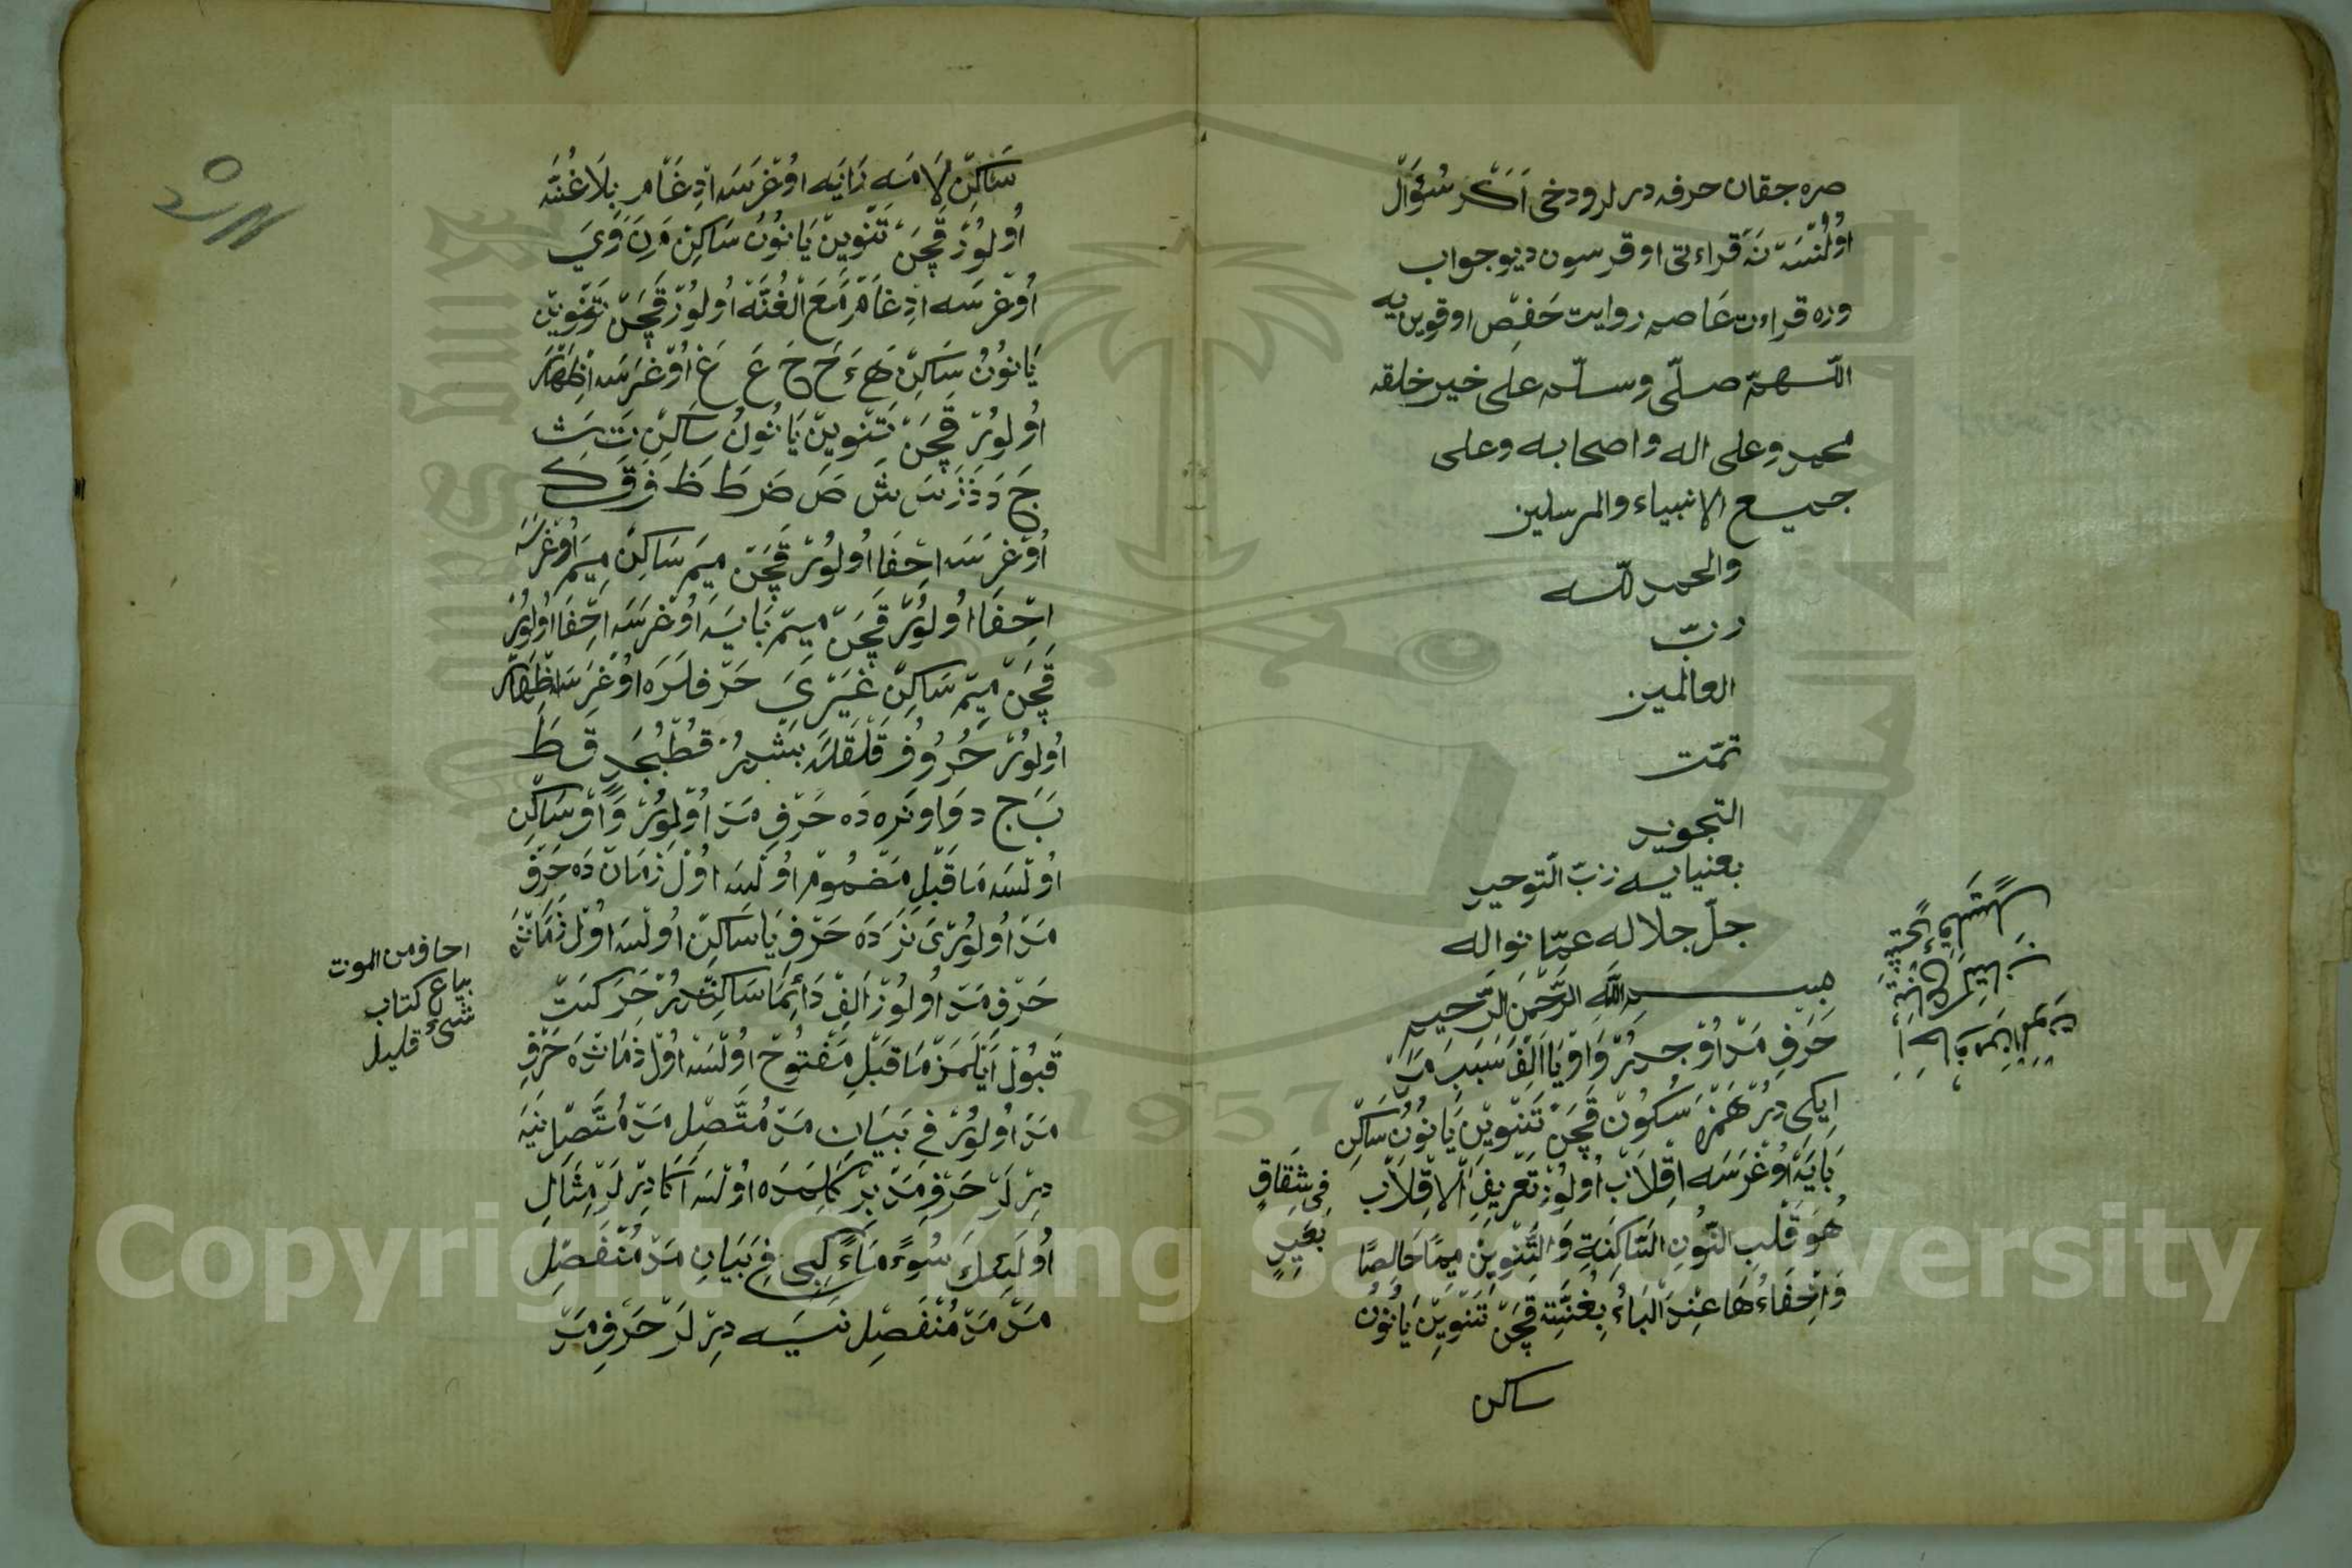 صره جقان حرفه درلر ودخى اَكَرْ سُؤَالْ
اوُلُنْسَه نَه قراءتى اوقرسون ديو جواب
وره قراءت عَاصم روايت حَفْصِ اوقوين يه
اللّهمّ صلّى وسلّم على خير خلقه
محمد وعلى اله واصحابه وعلى
جميع الانبياء والمرسلين
والحمد للّه
ربّ
العالمين
تمّت
التجويد
بعنيايه ربّ التّوحيد
جلّ جلاله عمّا نواله
بسم الله الرّحمن الرّحيم
حَرْفِ مَدْ اوُجدُرْ وَاوْ يَا اَلِفْ سَبَبِ مَدّ
اِيكى دِرْ هَمْزَه سُكُونْ قَچَنْ تَنْوِينْ يَا نُونُ سَاكِنْ
بَايَه اوُغْرَسَه اِقْلَابْ اوُلوُرْ تَعْرِيفِ الْاِقْلَابِ
هُوَ قَلْبِ النُّونِ السَّاكِنَةِ وَالتَّنْوِينِ مِيمًا خَالِصًا
وَاِخْفَاءُهَا عِنْدَ الْبَاءِ بِغُنَّتِه قَچَنْ تَنْوِينْ يَا نُونُ
ساكن
فِى شِقَاقٍ
بَعِيدٍ
سَاكِنْ لَامَه رَايَه اوُغْرَسَه اِدْغَام بِلَا غُنَّه
اوُلوُرْ قَچَنْ تَنْوِينْ يَا نُونُ سَاكِنْ مَ نَ وَ ىَ
اوُغْرَسَه اِدْغَامْ مَعَ الْغُنَّه اوُلوُرْ قَچَنْ تَنْوِينْ
يَا نُونُ سَاكِنْ هَ ءَ حَ خَ عَ غَ اوُغْرَسَه اِظْهَارْ
اوُلوُرْ قَچَنْ تَنْوِينْ يَا نُونُ سَاكِنْ تَ ثَ
جَ دَ ذَ زَ سَ شَ صَ ضَ طَ ظَ فَ قَ كَ
اوُغْرَسَه اِخْفَا اوُلوُرْ قَچَنْ مِيمِ سَاكِنْ مِيمَ اوُغْرَسَه
اِخْفَا اوُلوُرْ قَچَنْ مِيمْ بَايَه اوُغْرَسَه اِخْفَا اوُلوُرْ
قَچَنْ مِيمْ سَاكِنْ غَيْرِى حَرْفلَرَه اوُغْرَسَه اِظْهَارْ
اوُلوُرْ حُرُوفُ قَلْقَلَه بَشْدُرْ قُطْبُجَدٍ قَ طَ
بَ جَ د وَاو نَرَه دَه حَرْفِ مَدْ اوُلوُرْ وَاوْ سَاكِنْ
اوُلْسَه مَا قَبْلِ مَضْمُومْ اوُلْسَه اوُلْ زَمَانْ دَه حَرْفِ
مَدْ اوُلوُرْ ىَ نَرَدَه حَرْفِ يَا سَاكِنْ اوُلْسَه اوُلْ زَمَانْدَه
حَرْفِ مَدْ اوُلوُرْ اَلِفْ دَائِمَا سَاكِنْدُرْ حَرَكَتْ
قَبُولْ اَيْلَمَزْ مَا قَبْلِ مَفْتُوحْ اوُلْسَه اوُلْ زَمَانْدَه حَرْفِ
مَدْ اوُلوُرْ فِى بَيَانِ مَدْ مُتَّصِلْ مَدْ مُتَّصِلْ نَيَه
دِرْلَرْ حَرْفِ مَدْ بِرْ كَلِمَدَه اوُلْسَه اَكَا دِرْلَرْ مِثَالِ
اوُلَئِكَ سُوءَ مَاءً كِبى فِى بَيَانِ مَدْ مُنْفَصِلْ
مَدْ مَدْ مُنْفَصِلْ نَيَه دِرْلَرْ حَرْفِ مَدْ
احاف من الموت
بياع كتاب
شئ قليل
Copyright © King Saud University
1957